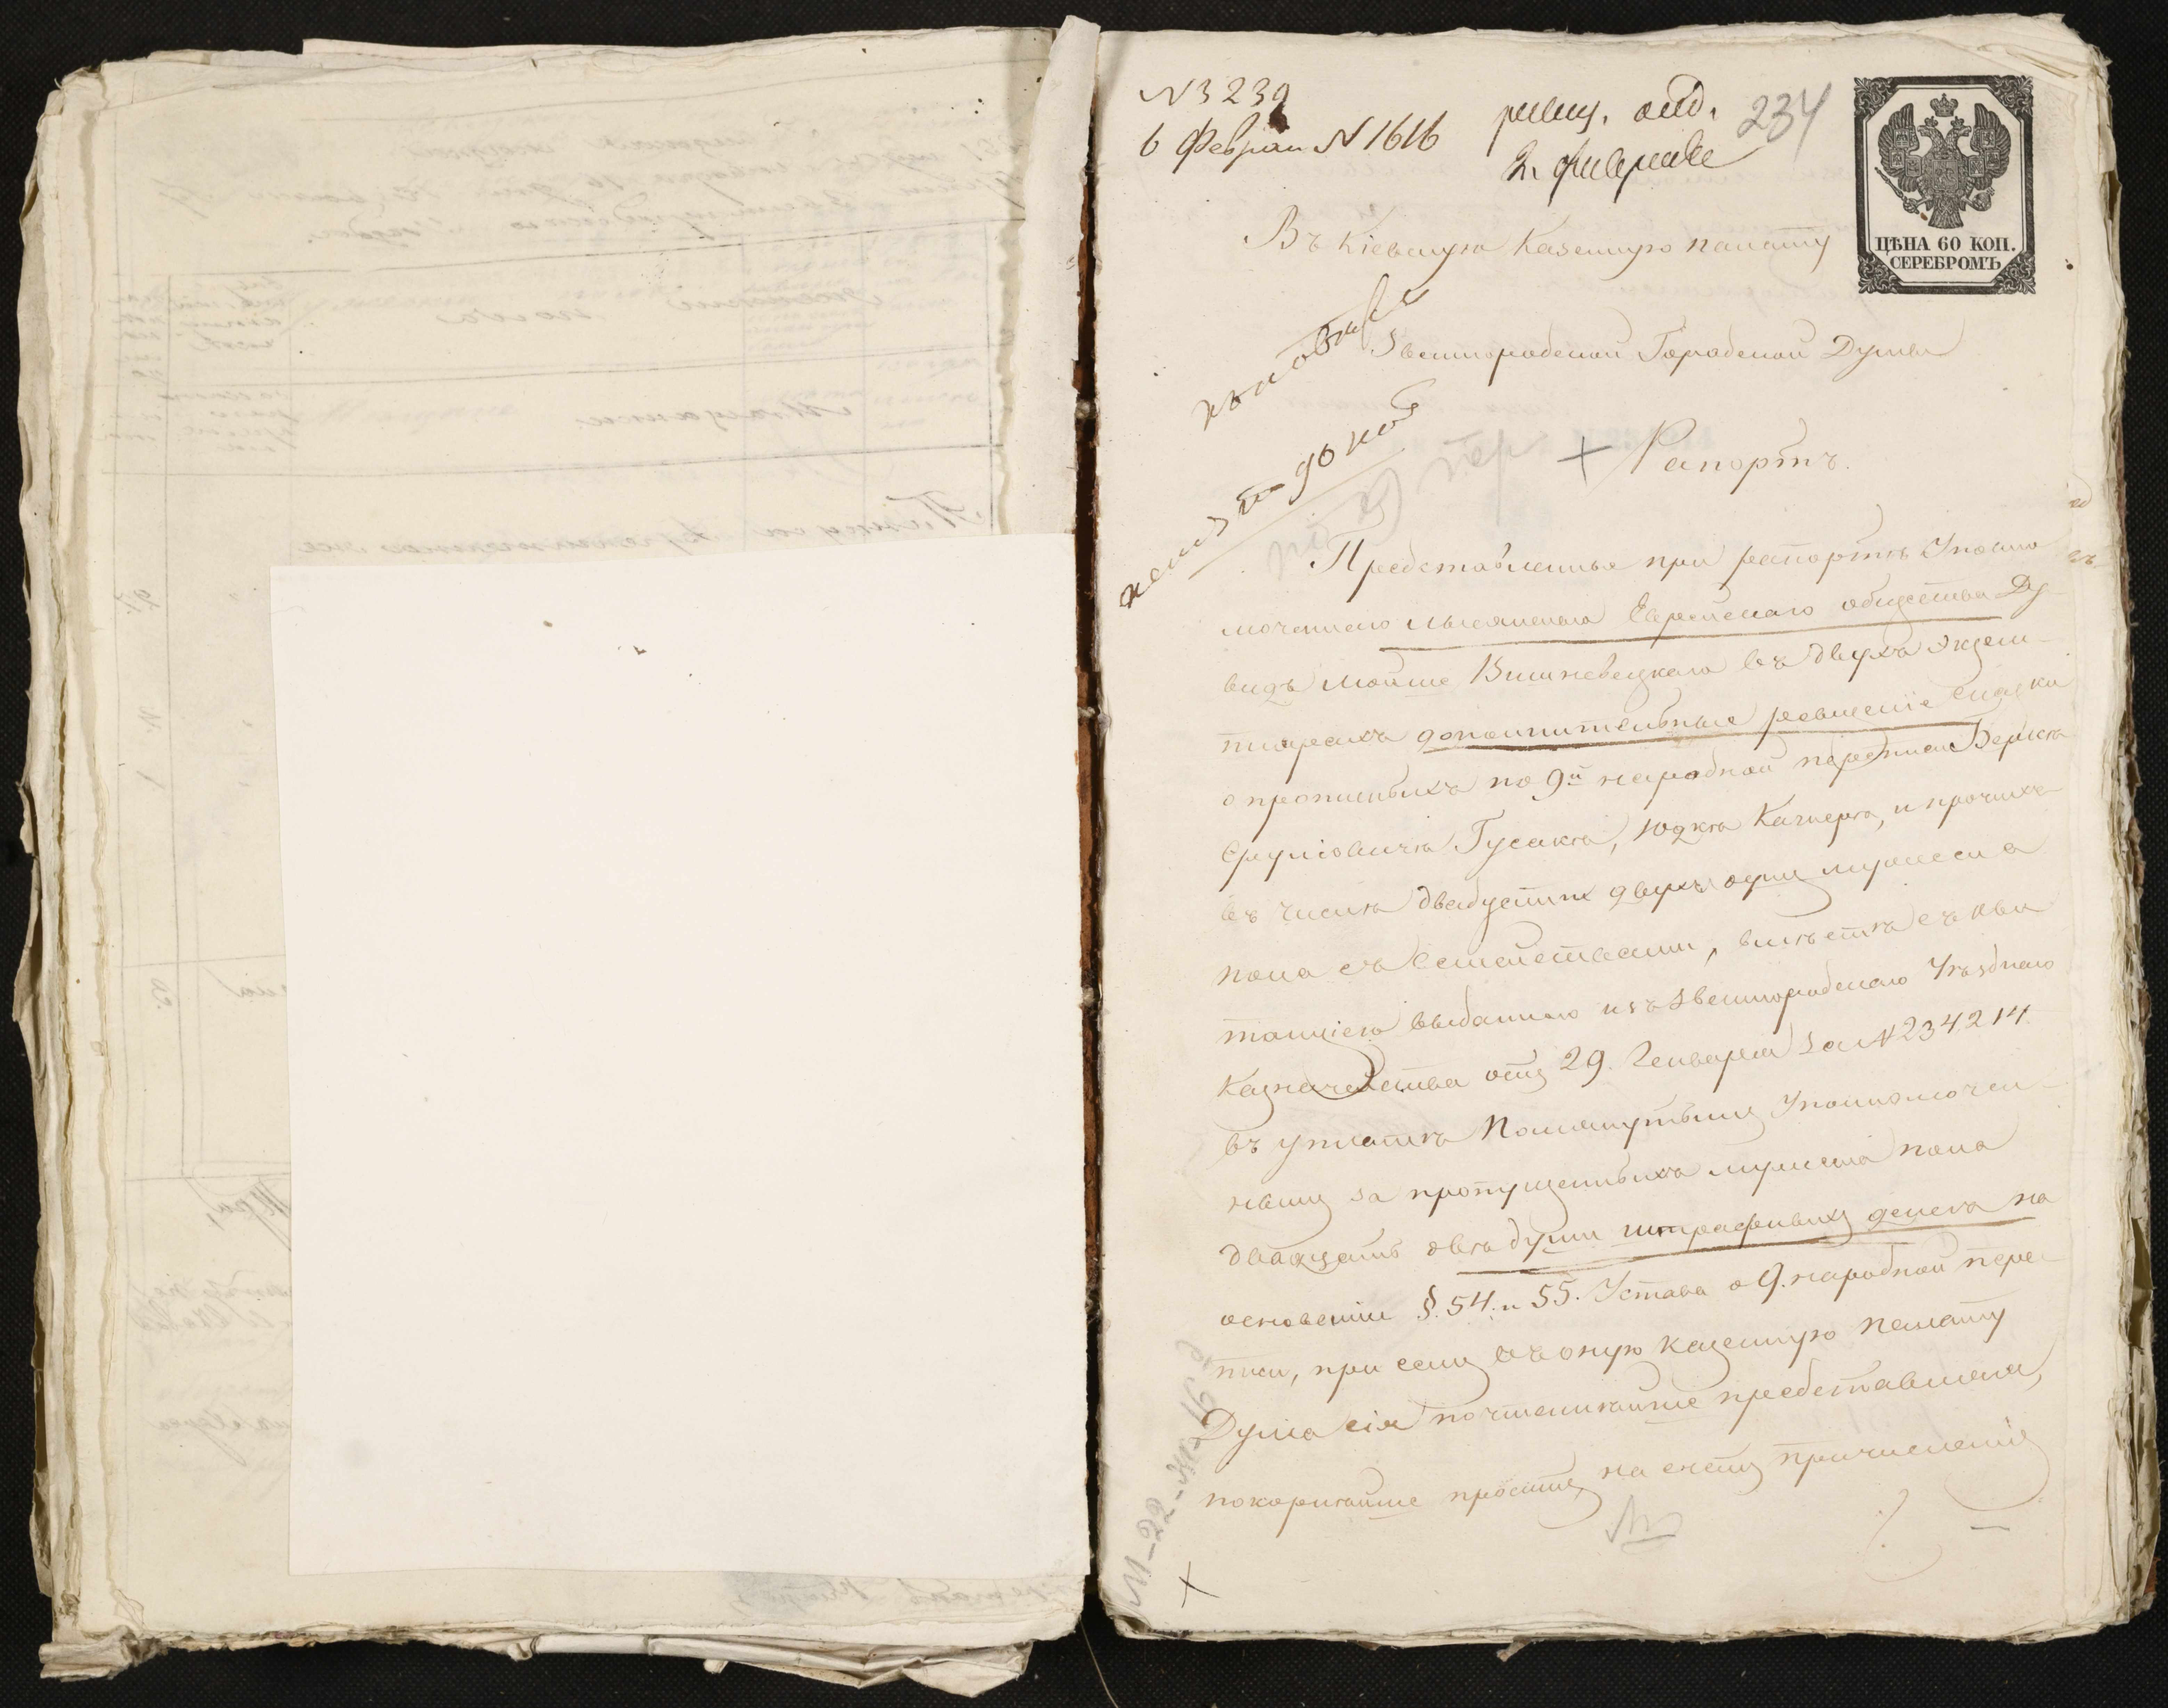 N 3239
6 Феврал N 1616
ревиз. отд.
2. феврале
234
ЦѢНА 60 КОП.
СЕРЕБРОМЪ
Въ Кіевскую Казенную палату
Звенигородской Городской Думы
Рапортъ.
Представленные при рапортѣ Уполно
моченнаго Лысянскаго Еврейскаго общества Ду
видъ Мошие Вишневецкаго въ двухъ экзем-
плярахъ дополнительные ревизскіе сказки
о прописныхъ по 9й народной переписи Берка
Сруліовича Гусака, Юдка Кагнера, и прочихъ
въ числѣ двадцати двухъ душъ мужеска
пола съ семействами, вмѣстѣ съ кви
танціею выданною изъ Звенигородскаго Уѣзднаго
Казначейства отъ 29. Генваря за N 234214
въ уплатѣ Помянутымъ Уполномочен-
нымъ за пропущенныхъ мужеска пола
двадцать двѣ души штрафныхъ денегъ на
основаніи §. 54. и 55. Устава о 9. народной пере
писи, при семъ въ оную казенную палату
Дума сія почтеннѣйше представляя,
покорнѣйше проситъ, на счетъ причисленія
М-22